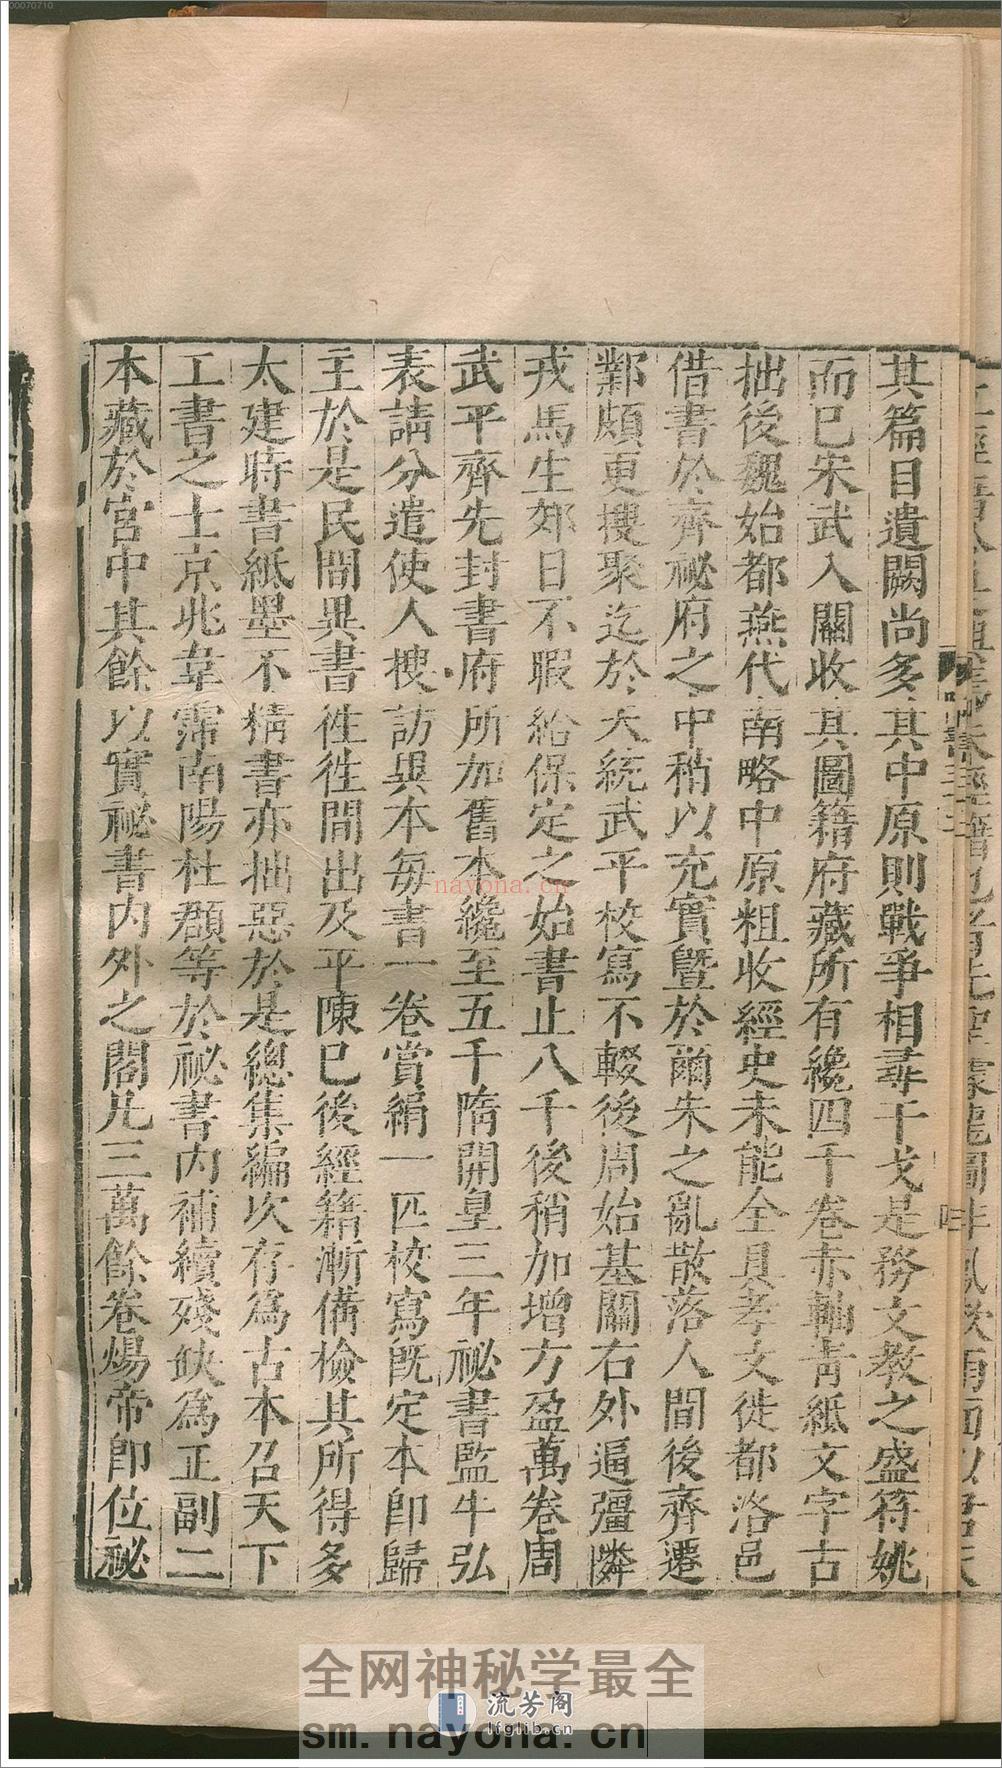 00070710
其篇目遺闕尚多其中原則戰爭相尋干戈是務文教之盛苻姚
而已宋武入關收其圖籍府藏所有纔四千卷赤軸青紙文字古
拙後魏始都燕代南略中原粗收經史未能全具孝文徙都洛邑
借書於齊祕府之中稍以充實曁於爾朱之亂散落人間後齊遷
鄴頗更搜聚迄於天統武平校寫不輟後周始基關右外逼彊隣
戎馬生郊日不暇給保定之始書止八千後稍加增方盈萬卷周
武平齊先封書府所加舊本纔至五千隋開皇三年祕書監牛弘
表請分遣使人搜訪異本每書一卷賞絹一匹校寫旣定本卽歸
主於是民間異書徃徃間出及平陳已後經籍漸備檢其所得多
太建時書紙墨不精書亦拙惡於是總集編次存爲古本召天下
工書之士京兆韋霈南陽杜頵等於祕書內補續殘缺爲正副二
本藏於宮中其餘以實祕書內外之閣凡三萬餘卷煬帝卽位祕
nayona.cn
全网神秘学最全
流芳阁
lfglib.cn
sm.nayona.cn